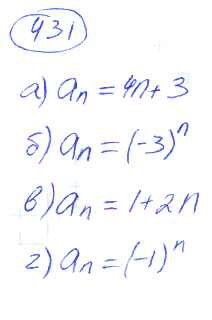 431
а) aₙ = 4n + 3
б) aₙ = (-3)ⁿ
в) aₙ = 1 + 2n
г) aₙ = (-1)ⁿ